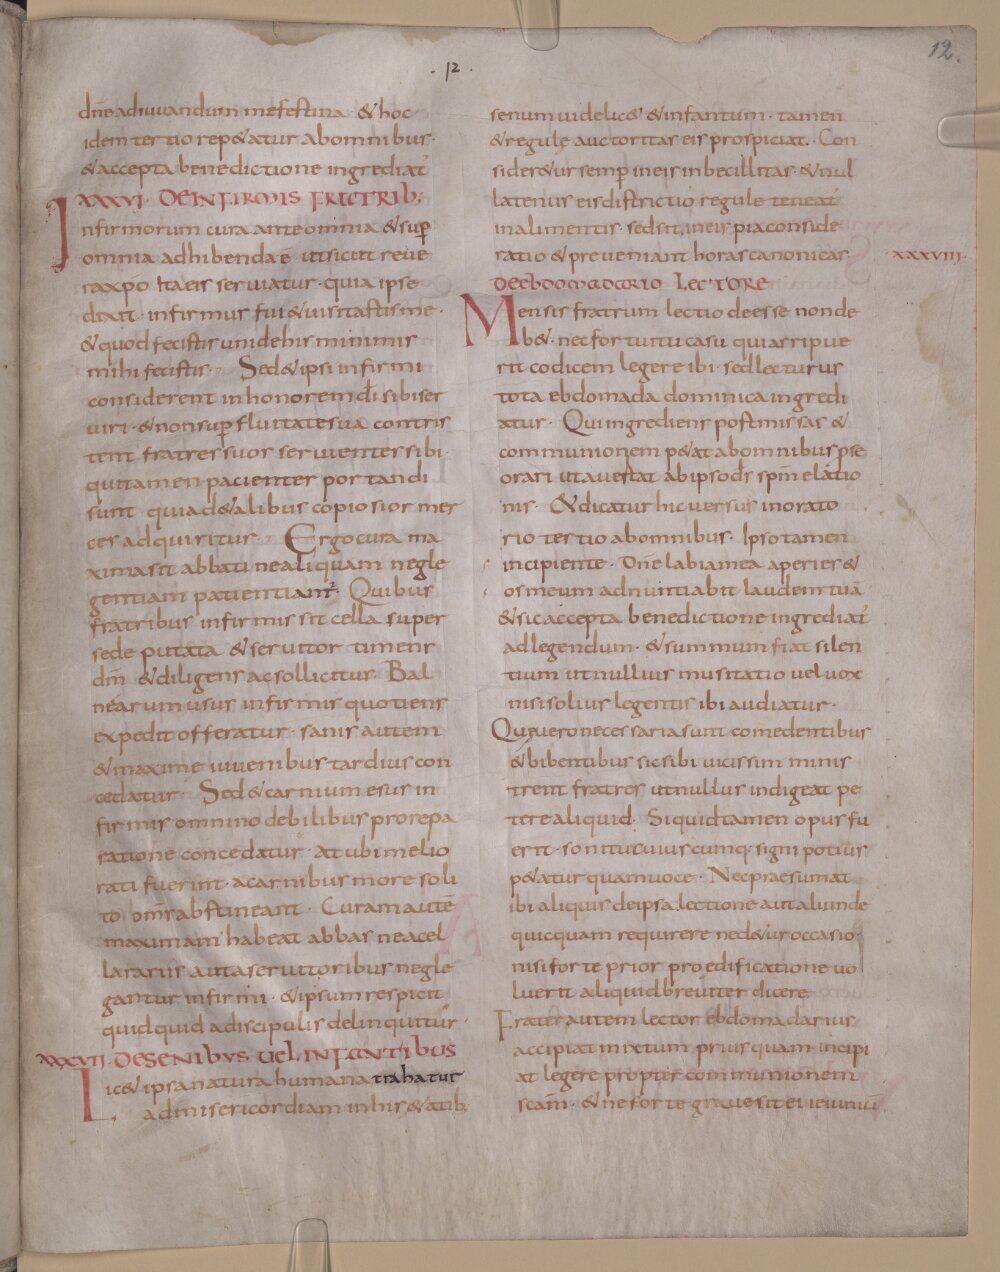 12.
. 12 .
dn̄e adiuuandum me festina · & hoc
idem tertio rep&atur ab omnibus·
& accepta benedictione ingrediat᷑
XXXVI · DE INFIRMIS FRATRIB;
Infirmorum cura ante omnia & sup̄
omnia adhibenda ē · ut sicut reue
ra xp̄o Ita eis seruiatur · quia ipse
dixit · infirmus fui & uisitastis me ·
& quod fecistis uni de his minimis
mihi fecistis · Sed & ipsi infirmi
considerent in honorem dī sibi ser
uiri · & non sup̄fluitate sua contris
tent fratres suos seruientes sibi ·
qui tamen pacienter portandi
sunt · quia de talibus copiosior mer
ces adquiritur · Ergo cura ma
xima sit abbati ne aliquam negle
gentiam patientiant᷑ · Quibus
fratribus infirmis sit cella super
se deputata & seruitor timens
dm̄ & diligens ac sollicitus · Bal
nearum usus infirmis quotiens
expedit offeratur · sanis autem
& maxime iuuenibus tardius con
cedatur · Sed & carnium esus in
firmis omnino debilibus pro repa
ratione concedatur · at ubi melio
rati fuerint · a carnibus more soli
to om̄s abstineant · Curam autē
maximam habeat abbas ne a cel
larariis aut a seruitoribus negle
gantur infirmi · & ipsum respicit
quidquid a discipulis delinquitur ·
XXXVII · DE SENIBUS UEL INFANTIBUS
Lic& ipsa natura humana trahatur
ad misericordiam in his &atib;
senum uidelic& & infantum · tamen
& regulę auctoritas eis prospiciat · Con
sider&ur semp̄ in eis inbecillitas · & nul
latenus eis districtio regulę teneat᷑
in alimentis · sed sit in eis pia conside
ratio & preueniant horas canonicas
XXXVIII ·
DE EBDOMADARIO LECTORE
Mensis fratrum lectio deesse non de
b& · nec fortuitu casu qui arripue
rit codicem legere ibi · sed lecturus
tota ebdomada dominica ingredi
atur · Qui ingrediens post missas &
communionem p&at ab omnibus p se
orari ut auertat ab ipso ds̄ spm̄ elatio
nis · & dicatur hic uersus in orato
rio tertio ab omnibus · Ipso tamen
incipiente · Dn̄e labia mea aperies &
os meum adnuntiabit laudem tuā
& sic accepta benedictione ingrediat᷑
ad legendum · & summum fiat silen
tium ut nullius musitatio uel uox
nisi solius legentis ibi audiatur ·
Quę uero necessaria sunt comedentibus
& bibentibus sic sibi uicissim minis
trent fratres ut nullus indigeat pe
tere aliquid · Si quid tamen opus fu
erit · sonitu cuiuscumq; signi potius
p&atur quam uoce · Nec praesumat
ibi aliquis de ipsa lectione aut aliunde
quicquam requirere ne d&ur occasio
nisi forte prior pro edificatione uo
luerit aliquid breuiter dicere
Frater autem lector ebdomadarius
accipiat mixtum prius quam incipi
at legere propter communionem
scam̄ · & ne forte graue sit ei ieiuniū